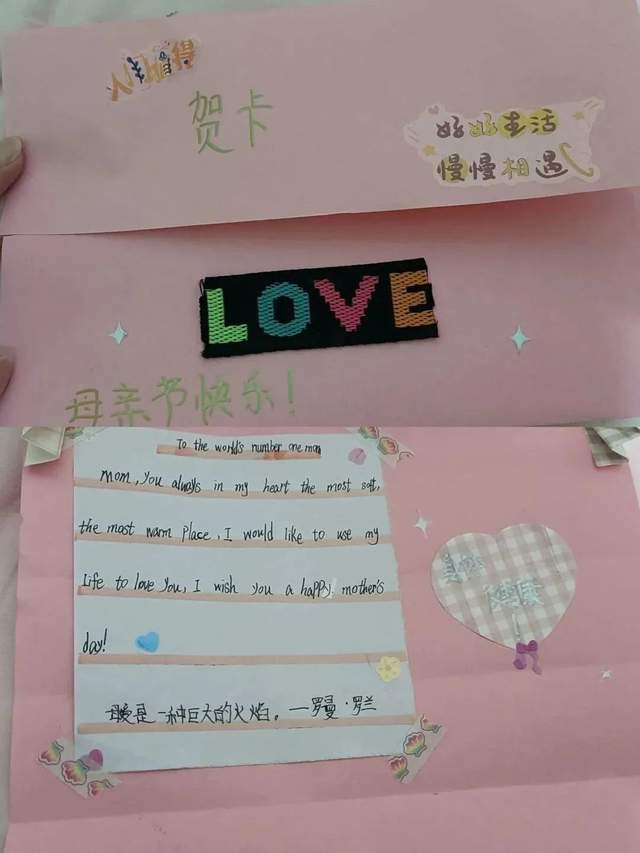 贺卡
好好生活
慢慢相遇
LOVE
母亲节快乐!
To the world's number one mom
mom, you always in my heart the most soft,
the most warm place, I would like to use my
life to love you, I wish you a happy mother's
day!
母爱是一种巨大的火焰。—罗曼·罗兰
身体
健康